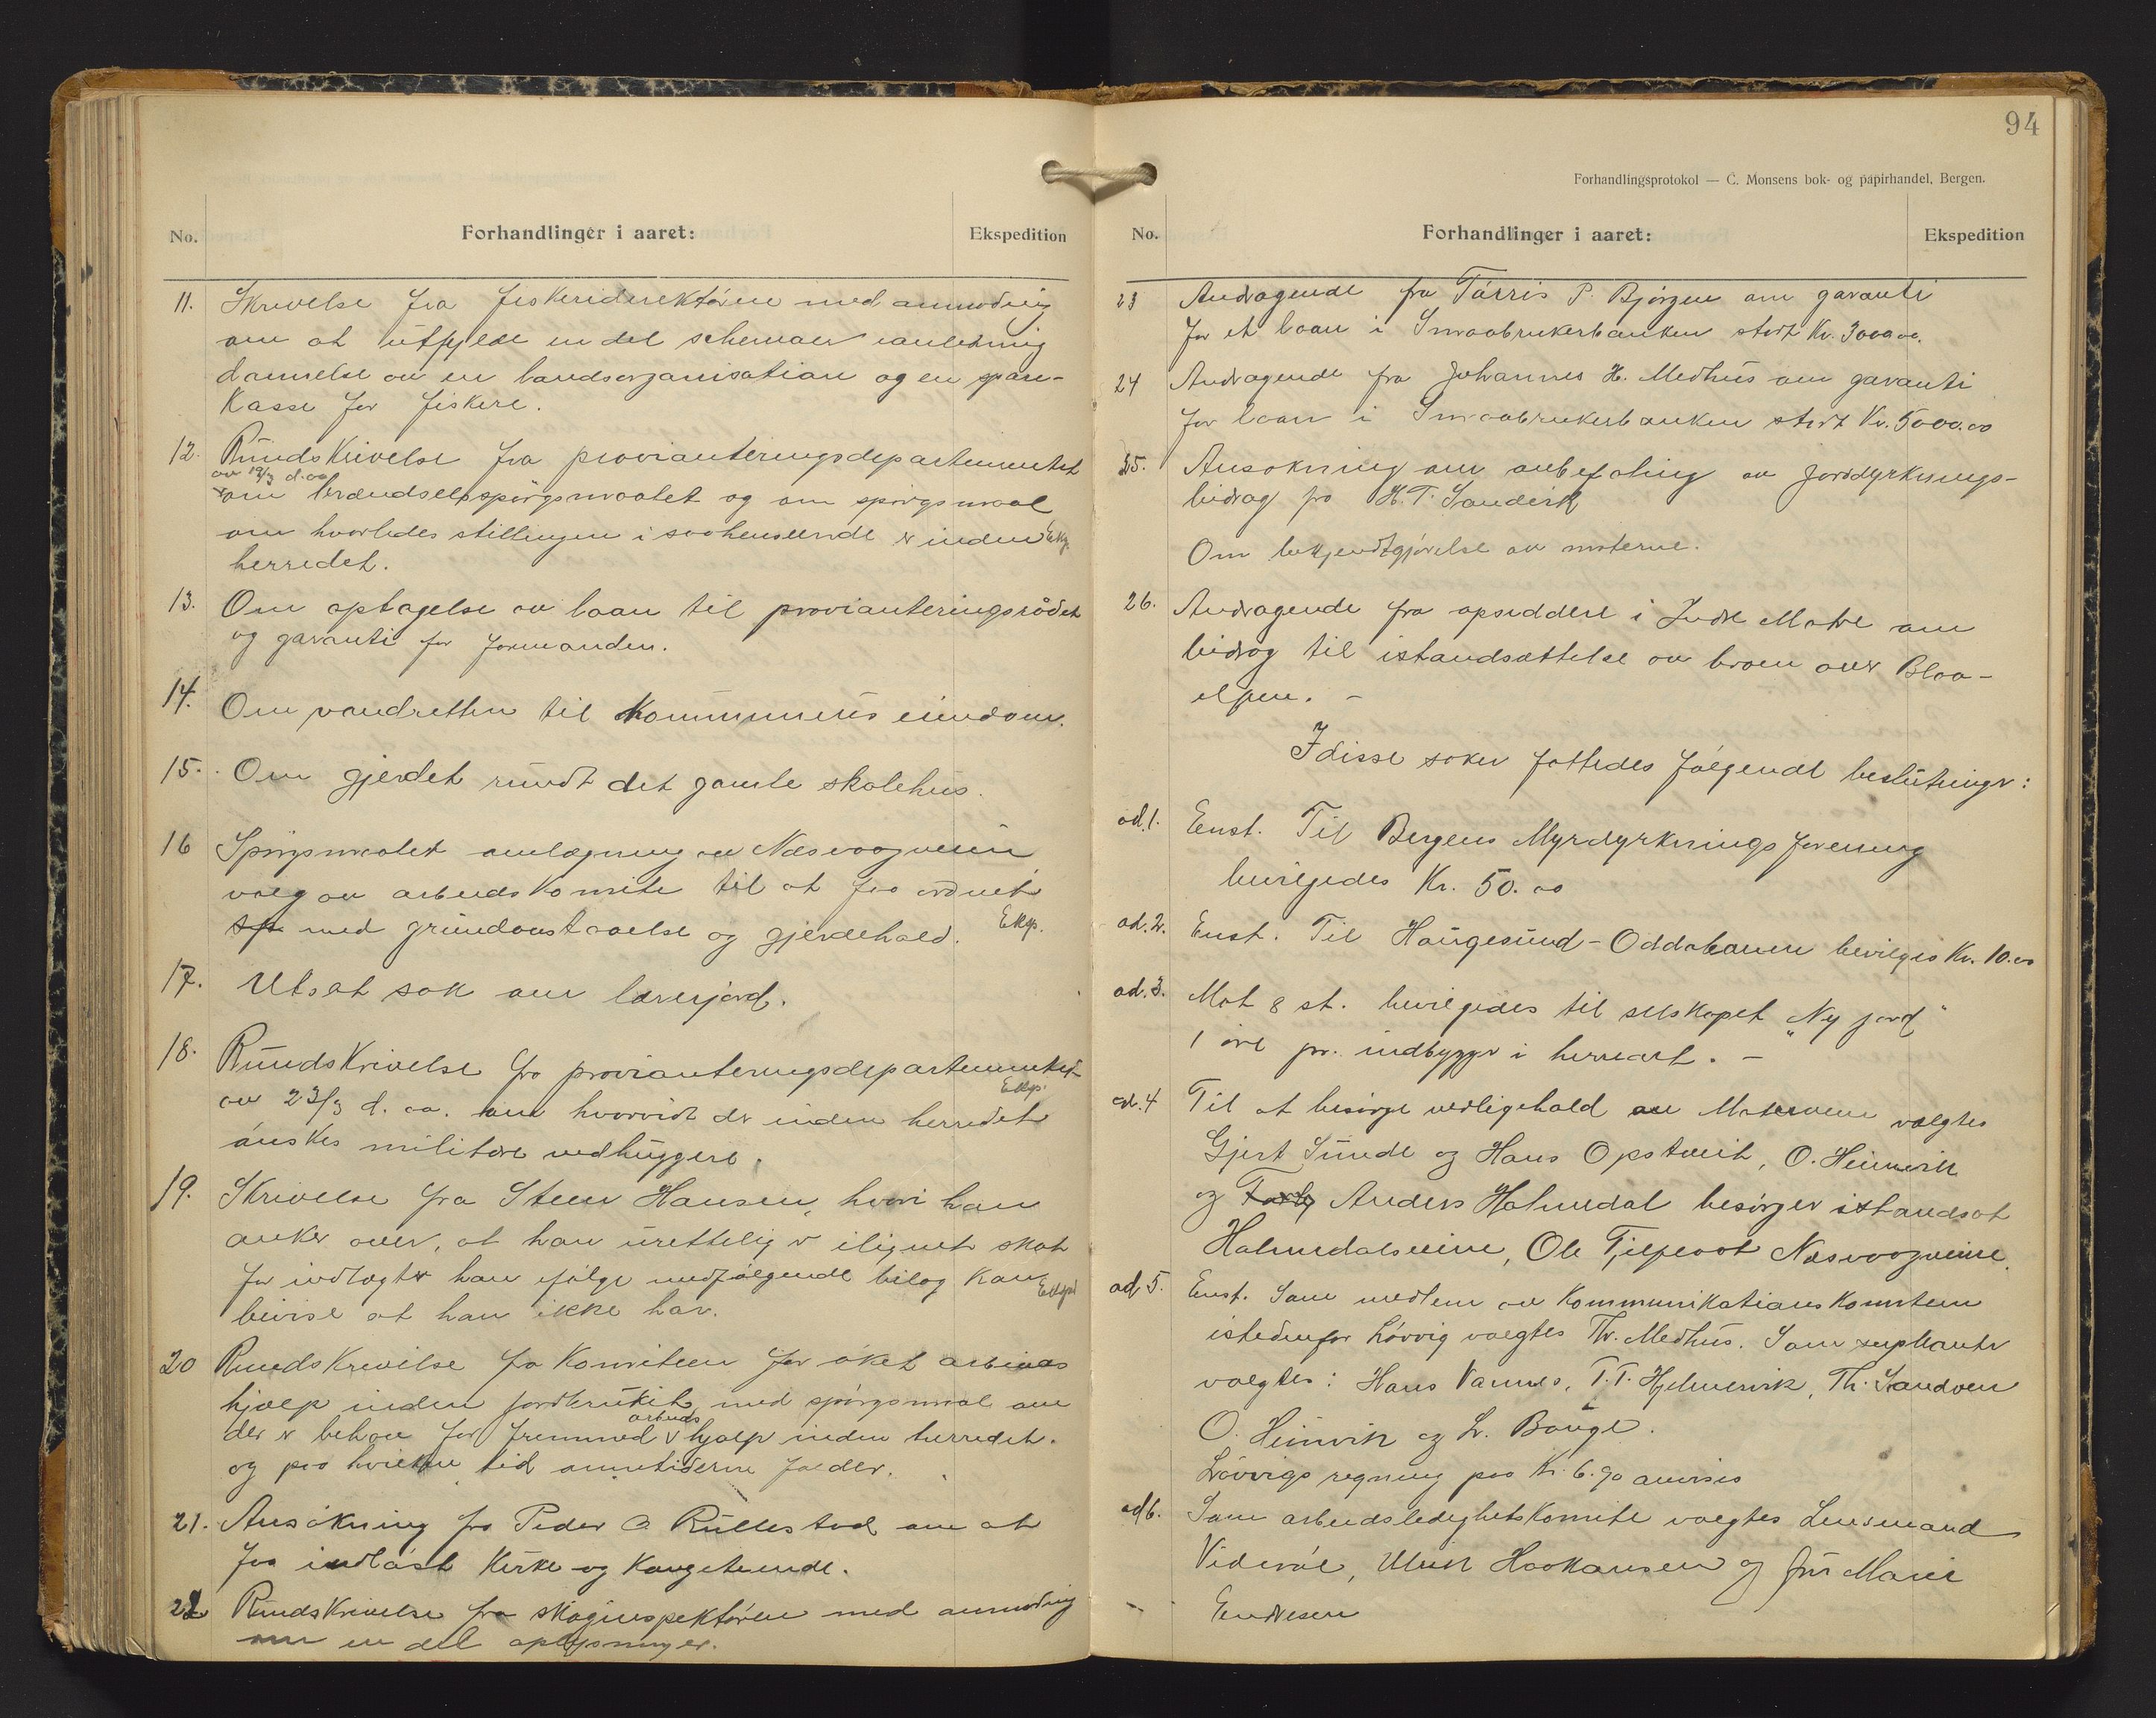 No. Forhandlinger i aaret: Ekspedition
11. Skrivelse fra fiskeridirektøren med anmodning
om at utfylde en del schemaer i anledning
dannelse av en landsorganisation og en spare-
kasse for fiskere.
12. Rundskrivelse fra provianteringsdepartementet
av 19/3 d. aa
om brændselsspørgsmaalet og om spørgsmaal
om hvorledes stillingen i saahenseende er inden Eksp.
herredet.
13. Om optagelse av laan til provianteringsrådet
og garanti for formanden.
14. Om vandretten til kommunens eiendom.
15. Om gjerdet rundt det gamle skolehus.
16 Spørgsmaalet omlægning av Næsvaagveien
valg av arbeidskomite til at faa ordnet
med grundavstaaelse og gjerdehold. Eksp.
17. Utsat sak om lærerjord.
18. Rundskrivelse fra provianteringsdepartementet
Eksp.
av 23/3 d. aa. om hvorvidt der inden herredet
ønskes militære vedhuggere.
19. Skrivelse fra Steen Hansen, hvori han
anker over, at han urettelig er ilignet skat
for indtægter han ifølge medfølgende bilag kan Eksp.
bevise at han ikke har.
20 Rundskrivelse fra Komiteen for øket arbeids
hjælp inden jordbruket, med spørgsmaal om
arbeids
der er behov for fremmed hjælp inden herredet.
og paa hvilken tid
21. Ansøkning fra Peder O. Rullestad om at
faa indløst Kirke og Kongetiende.
22 Rundskrivelse fra skoginspektøren med anmodning
om en del oplysninger.
94
Forhandlingsprotokol — C. Monsens bok- og papirhandel, Bergen.
No. Forhandlinger i aaret: Ekspedition
23 Andragende fra Tørris P. Bjørgen om garanti
for et laan i Smaabrukerbanken stort Kr. 3000.00.
24 Andragende fra Johannes H. Medhus om garanti
for laan i Smaabrukerbanken stort Kr. 5000.00
25. Ansøkning om anbefaling av jorddyrknings-
bidrag fra H. T. Sandvik
Om bekjendtgjørelse av møterne.
26. Andragende fra opsiddere i Indre Matre om
bidrag til istandsættelse av broen over Blaa-
elven. –
I disse saker fattedes følgende beslutninger:
ad. 1. Enst. Til Bergens Myrdyrkningsforening
bevilgedes Kr. 50.00
ad. 2. Enst. Til Haugesund-Oddabanen bevilges Kr. 10.00
ad. 3. Mot 8 st. bevilgedes til selskapet "Ny jord"
1 øre pr. indbygger i herredet. –
ad. 4 Til at besørge vedligehold av Matreveien valgtes
Gjert Sunde og Hans Opstveit, O. Heimvik
og Anders Holmedal besørger istandsat
Holmedalsveiene, Ole Næsvaagveiene.
ad 5. Enst. Som medlem av Kommunikationskomiteen
istedenfor Løvvig valgtes Th. Medhus. Som suppleanter
valgtes: Hans Vannes, T. T. Hjelmervik, Th. Sandven
O. Heimvik og L. Bauge.
Løvvigs regning paa Kr. 6.90 anvises
ad 6. Som arbeidsledighetskomite valgtes Lensmand
Viderøe, Ulrik Haakansen og fru Marie
Endresen